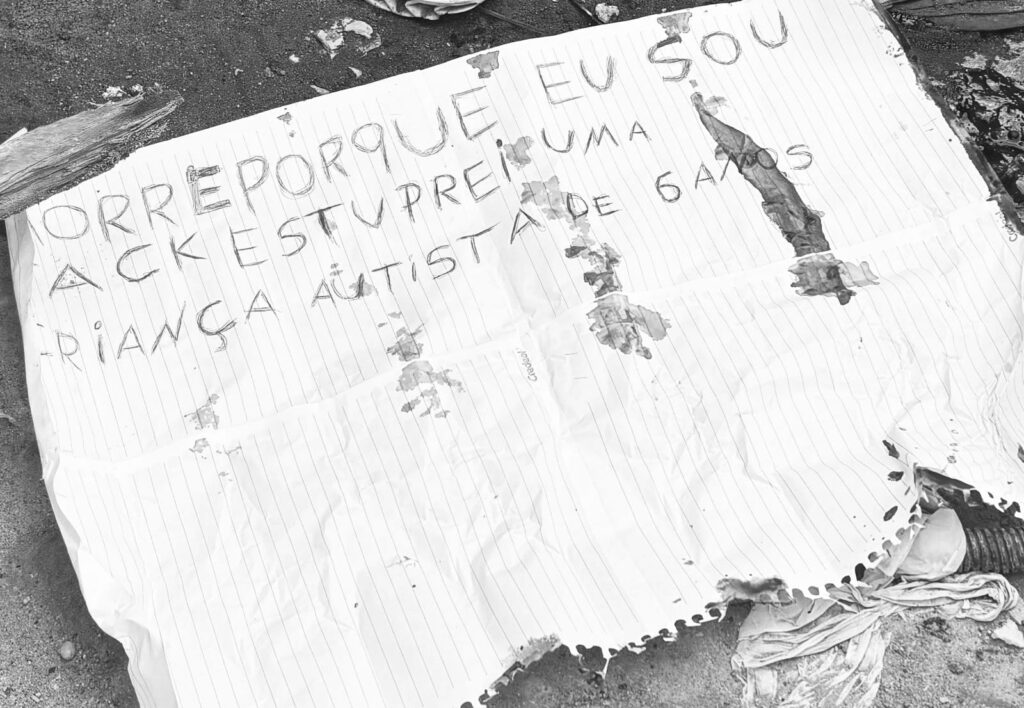 ORREPORQUE EU SOU
ACK ESTUPREI UMA
RIANÇA AUTISTA DE 6 ANOS
Credeal